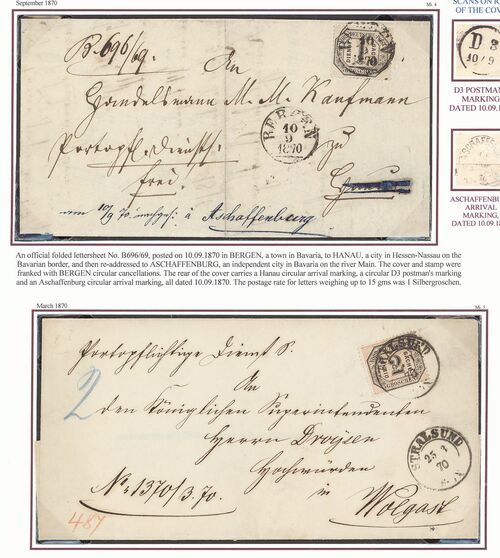 September 1870
Mi. 4
SCANS ON R
OF THE COV
B. 696/69.
An
Handelsmann M. M. Kaufmann
Portopfl. Dienstf.
frei.
zu
BERGEN
10
9
1870
10
9
1870
vom 10/9 70. nachges: à Aschaffenburg
D 3
10/9
D3 POSTMAN
MARKING
DATED 10.09.1
ASCHAFFENBU
ARRIVAL
MARKING,
DATED 10.09.1
An official folded lettersheet No. B696/69, posted on 10.09.1870 in BERGEN, a town in Bavaria, to HANAU, a city in Hessen-Nassau on the
Bavarian border, and then re-addressed to ASCHAFFENBURG, an independent city in Bavaria on the river Main. The cover and stamp were
franked with BERGEN circular cancellations. The rear of the cover carries a Hanau circular arrival marking, a circular D3 postman's marking
and an Aschaffenburg circular arrival marking, all dated 10.09.1870. The postage rate for letters weighing up to 15 gms was 1 Silbergroschen.
March 1870
Mi. 5
Portopflichtige Dienst S.
2
An
den Königlichen Superintendenten
Herrn Droysen
Hochwürden
in
Wolgast
No: 1370/3.70.
487
2
GROSCHEN
STRALSUND
25 3
70